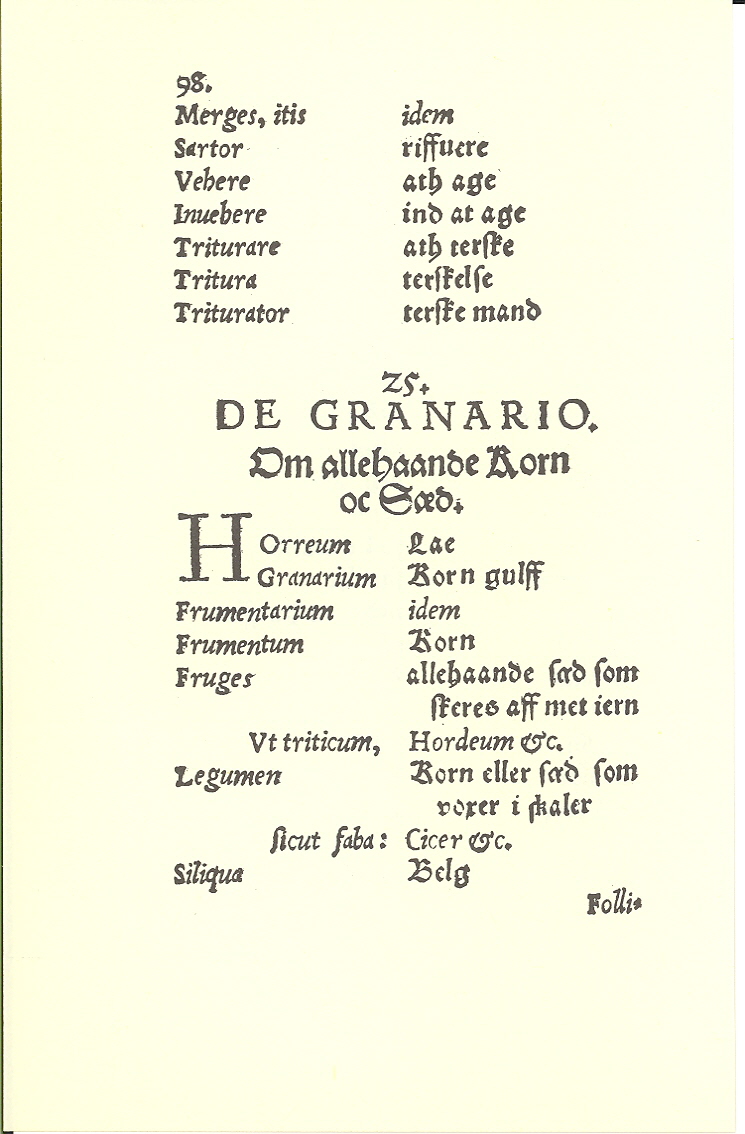 98.
Merges, itis idem
Sartor riffuere
Vehere ath age
Inuehere ind at age
Triturare ath terſke
Tritura terſkelſe
Triturator terſke mand
25.
DE GRANARIO.
Om allehaande Korn
oc Sæd.
HOrreum Lae
Granarium Korn gulff
Frumentarium idem
Frumentum Korn
Fruges allehaande ſæd ſom
ſkeres aff met iern
Vt triticum, Hordeum &c.
Legumen Korn eller ſæd ſom
voxer i ſkaler
ſicut faba: Cicer &c.
Siliqua Belg
Folli-